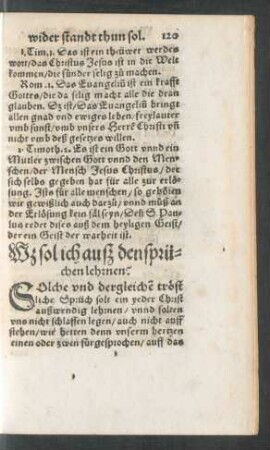 wider standt thun sol. 120
1. Tim. 1. Das ist ein thüwer werdes
wort/das Christus Jesus ist in die Welt
kommen/die sünder selig zů machen.
Rom. 1. Das Euangeliū ist ein krafft
Gottes/die da selig macht alle die dran
glauben. Sz ist/Das Euangeliū bringt
allen gnad vnd ewiges leben/freylauter
vmb sunst/vmb vnsers Herrē Christi vñ
nicht vmb deß gesetzes willen.
1. Timoth. 2. Es ist ein Gott vnnd ein
Mitler zwischen Gott vnnd den Men-
schen/der Mensch Jesus Christus/der
sich selbs gegeben hat für alle zur erlö-
sung. Ists für alle menschen/so gehören
wir gewißlich auch darzů/vnnd můß an
der Erlösung kein fäl seyn/Deß S. Pau-
lus redet dises auß dem heyligen Geist/
der ein Geist der warheit ist.
Wz sol ich auß den sprü-
chen lehrnen?
SOlche vnd dergleichē tröst
liche Sprüch solt ein yeder Christ
außwendig lehrnen/vnnd solten
vns nicht schlaffen legen/auch nicht auff
stehen/wir hetten denn vnserm hertzen
einen oder zwen fürgesprochen/auff das